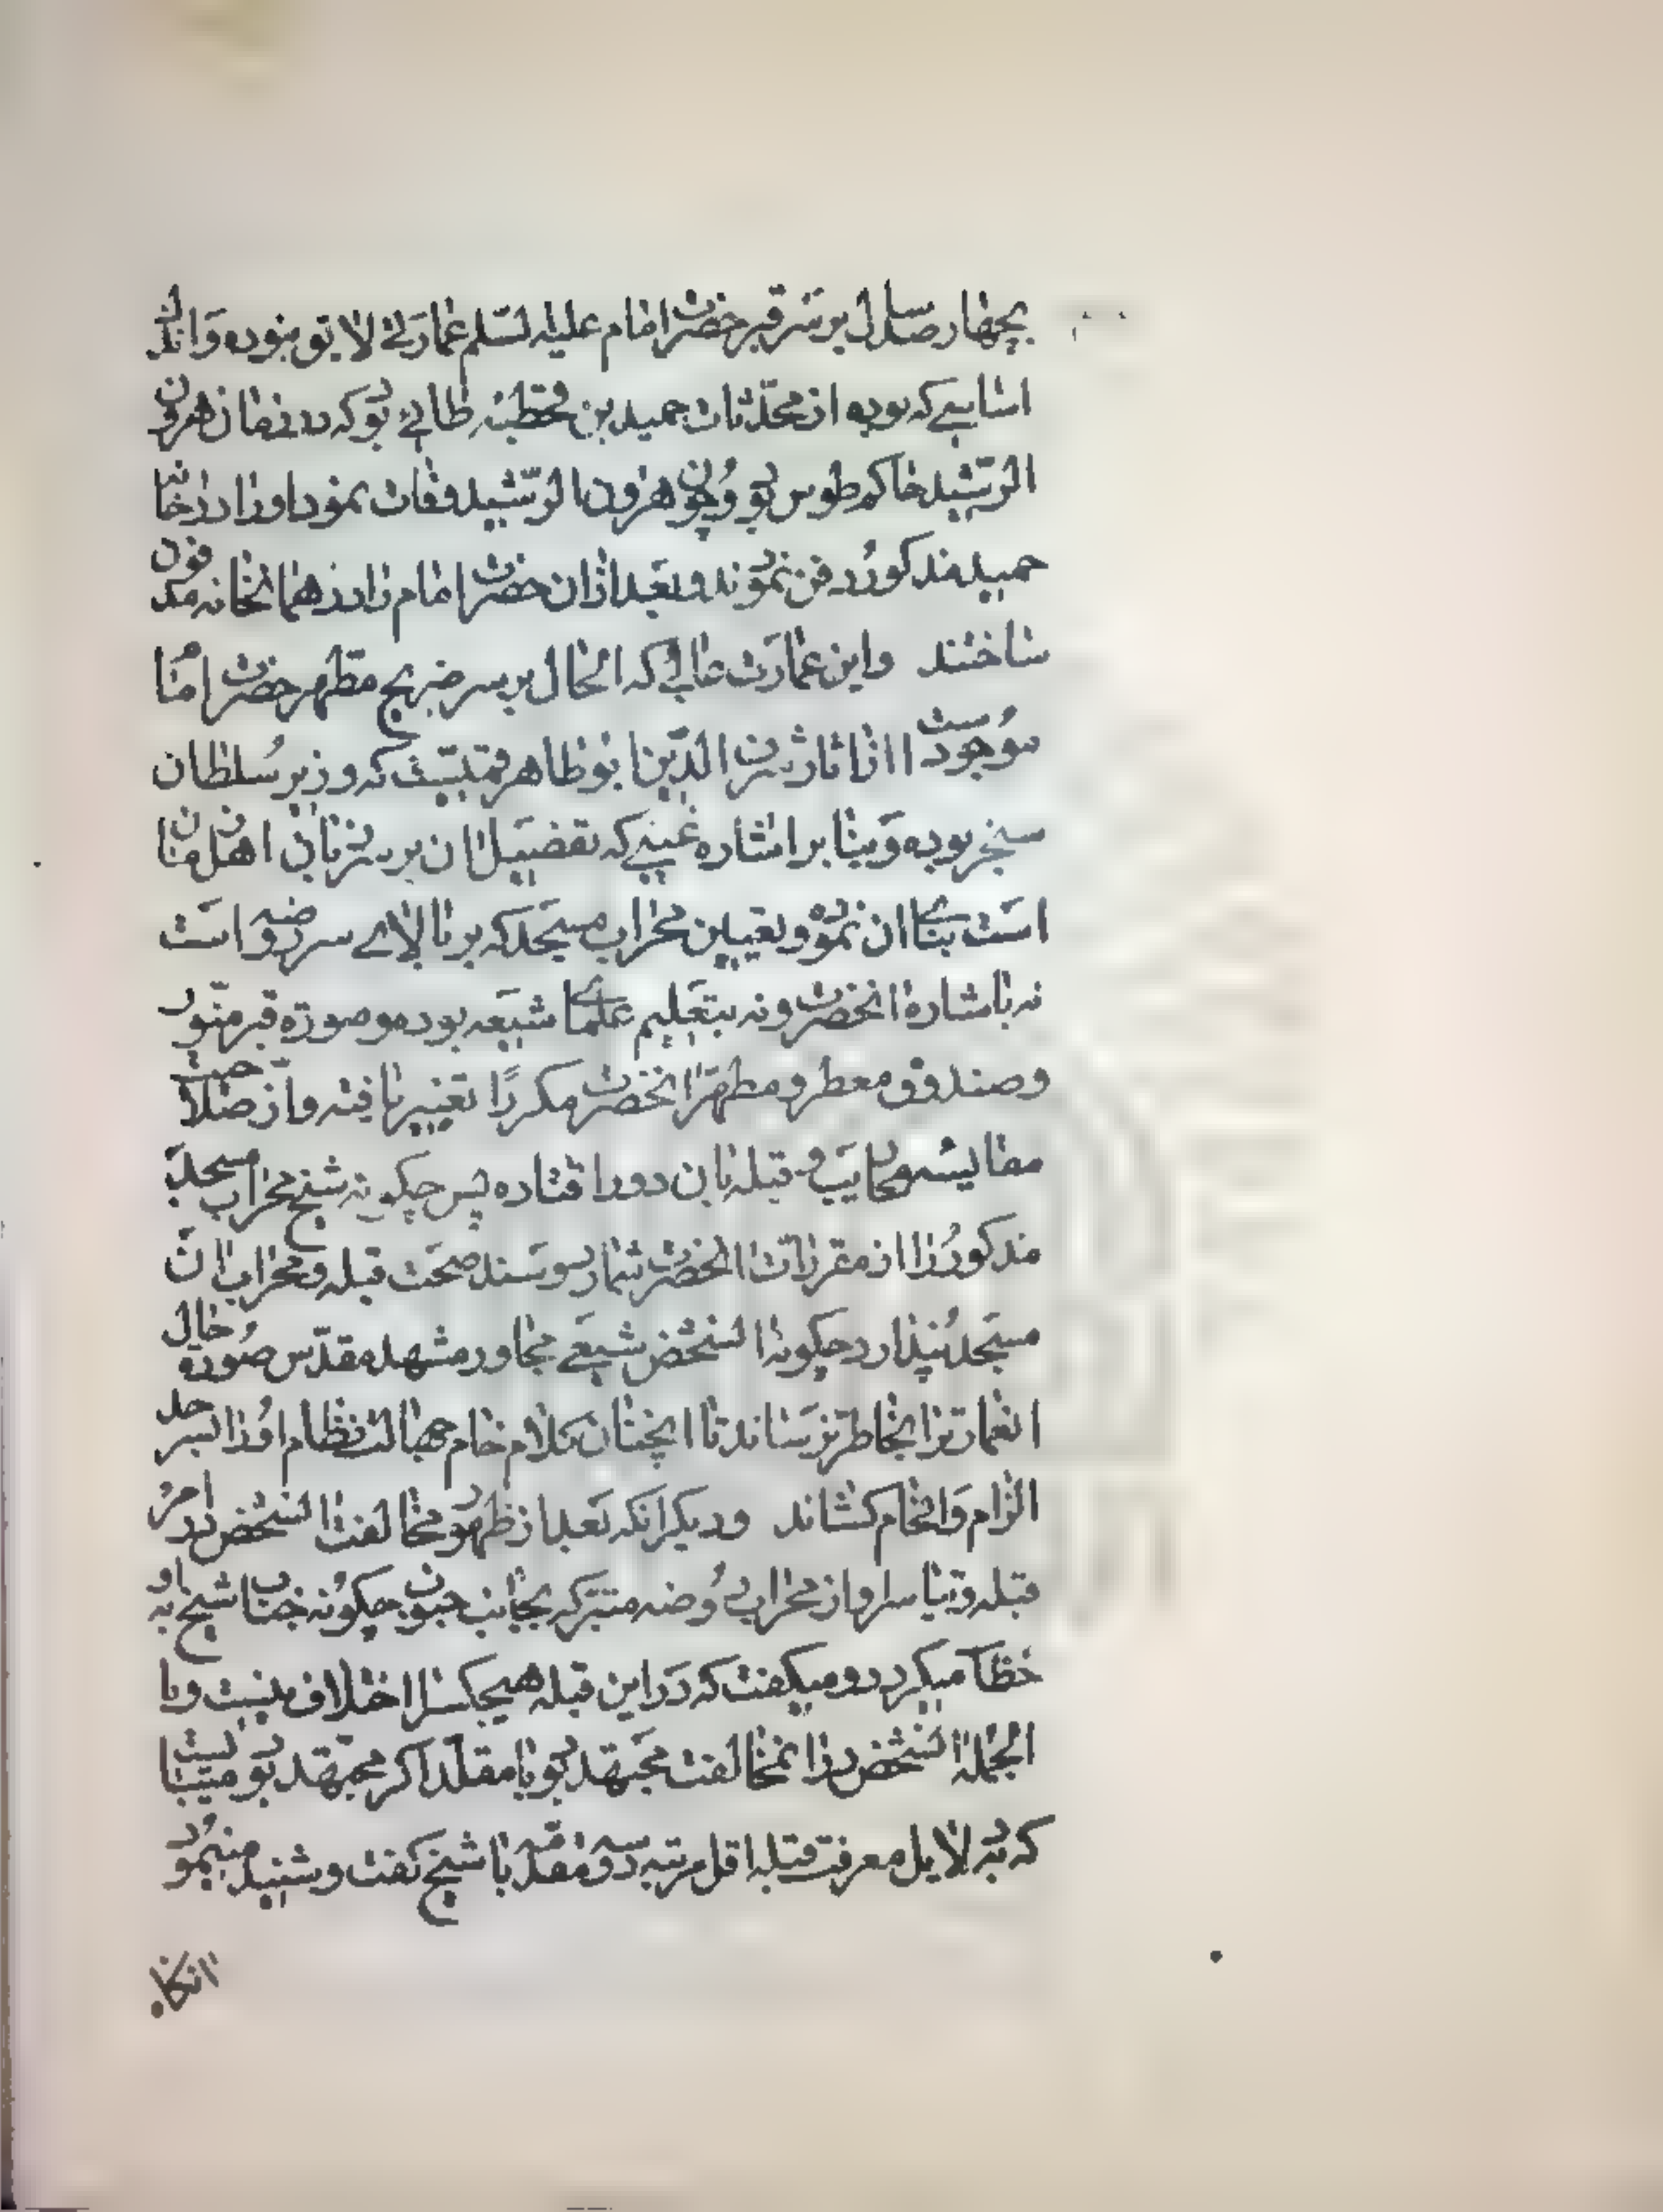 بچهار صد سال بر سر قبر حضرت امام علیه لسلم عمارتی لایق نبوده و اندک
اساسی که بوده از محدثات حمید بن قحطبه طائی بود که در زمان هرون
الرشید حاکم طوس بود و چون هرون الرشید وفات نمود او را در خانه
حمید مذکور دفن نمودند و بعد از ان حضرت امام را در همانخانه مدفون
ساختند واین عمارت عالی که الحال بر سر ضریح مطهر حضرت امام
موجود است از اثار شرف الدین ابو طاهر قمیست که وزیر سلطان
سنجر بوده و بنا بر اشاره غیبی که تفضیل ان بر سر زبان اهل ان
است بنای ان نموده و تعیین محراب مسجد که بر بالای سر روضه است
نه باشاره انحضرت و نه بتعلیم علمای شیعه بوده و صورة قبر منور
وصندوق معطر و مطهر انحضرت مکررًا تغییر یافته و از صلاحیت
مقایسه محاریب و قبله بان دور افتاده پس چکونه شیخ محراب مسجد
مذکور را از مقررات انحضرت شمارد و سند صحت قبله و محراب ان
مسجد پندارد چکونه انشخص شیعی مجاور مشهد مقدس صورة حال
انعمارترا بخاطر نرساند تا انچنان کلام خام جهالت نظام او را بسر حد
الزام و افحام کشاند ودیکر انکه بعد از ظهور مخالفت انشخص در امر
قبله و تیاسر او از محراب روضه متبرکه بجانب جنوب چکونه جناب شیخ به او
خطاب میکردد و میکفت که در این قبله هیچکسرا اختلاف نیست و با
الجمله انشخص در انمخالفت مجتهد بود یا مقلد اکر مجتهد بود میبایست
که به دلایل معرفت قبله اقل مرتبه دو سه مقدمه با شیخ کفت و شنید مینمود
انکاه